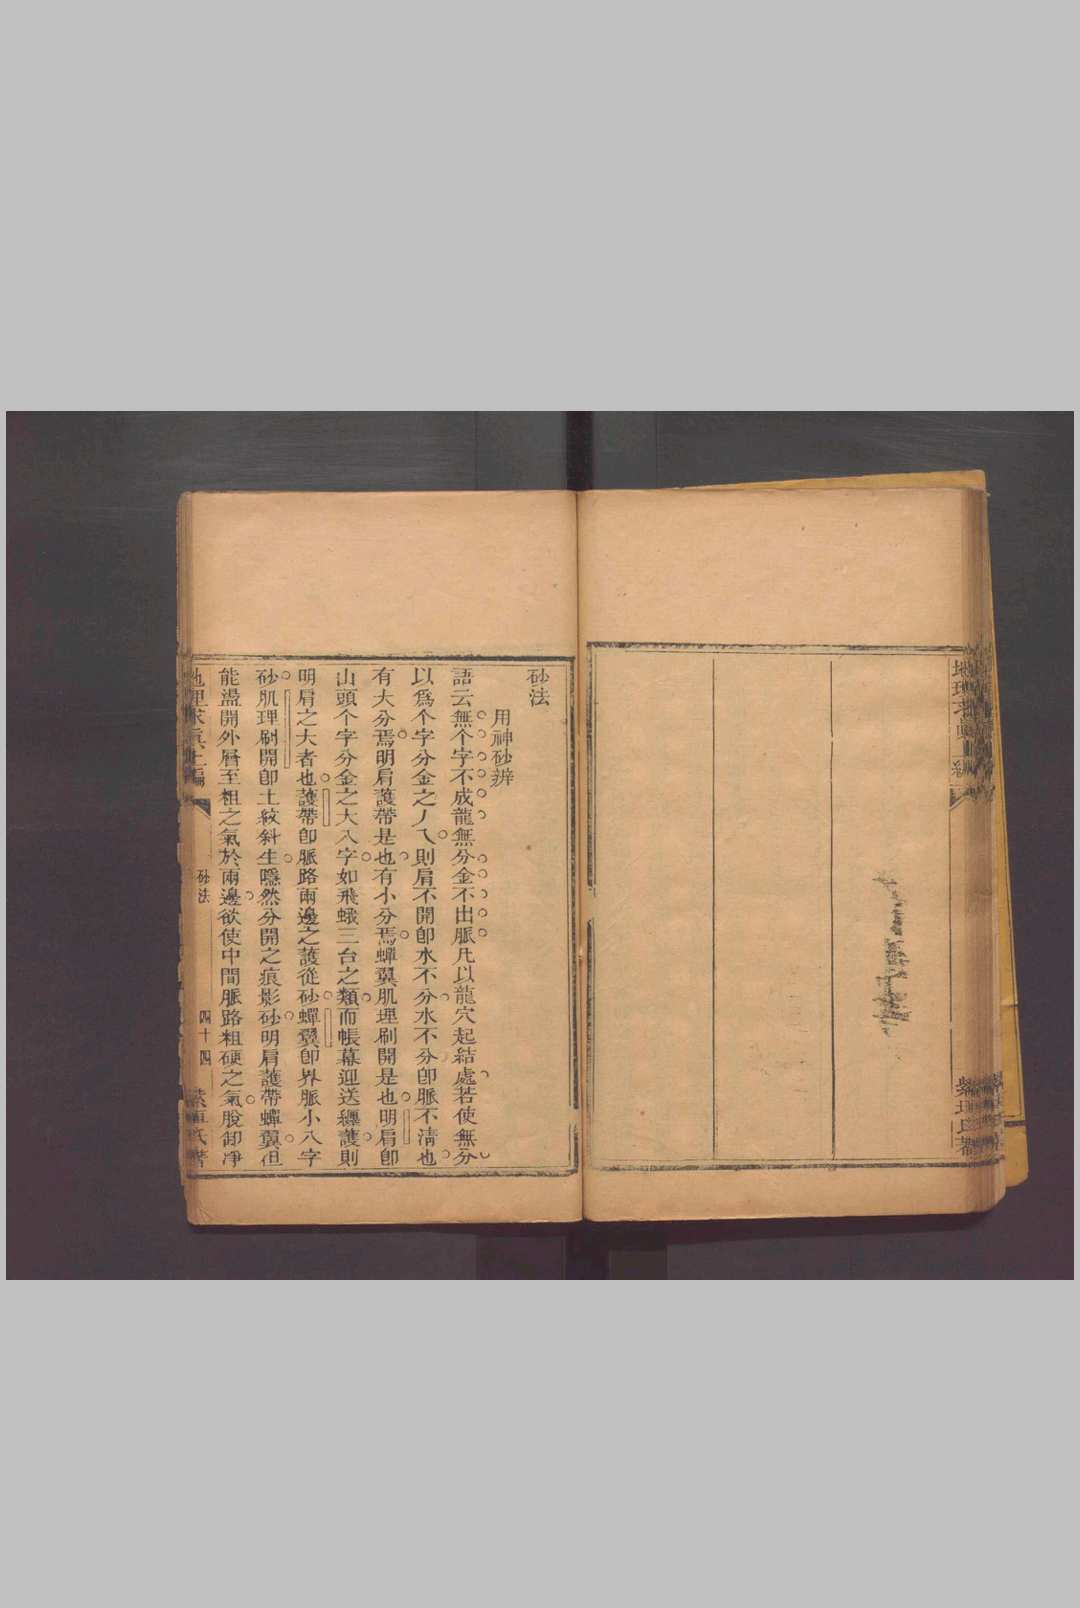 砂法
用神砂辨
語云無个字不成龍無分金不出脈凡以龍穴起結處若使無分
以爲个字分金之丿乀則肩不開卽水不分水不分卽脈不淸也
有大分焉明肩護帶是也有小分焉蟬翼肌理刷開是也明肩卽
山頭个字分金之大八字如飛蛾三台之類而帳幕迎送纒護則
明肩之大者也護帶卽脈路兩邊之護從砂蟬翼卽界脈小八字
砂肌理刷開卽土紋斜生隱然分開之痕影砂明肩護帶蟬翼但
能盪開外層至粗之氣於兩邊欲使中間脈路粗硬之氣脫卸凈
地理求眞上編
砂法
四十四